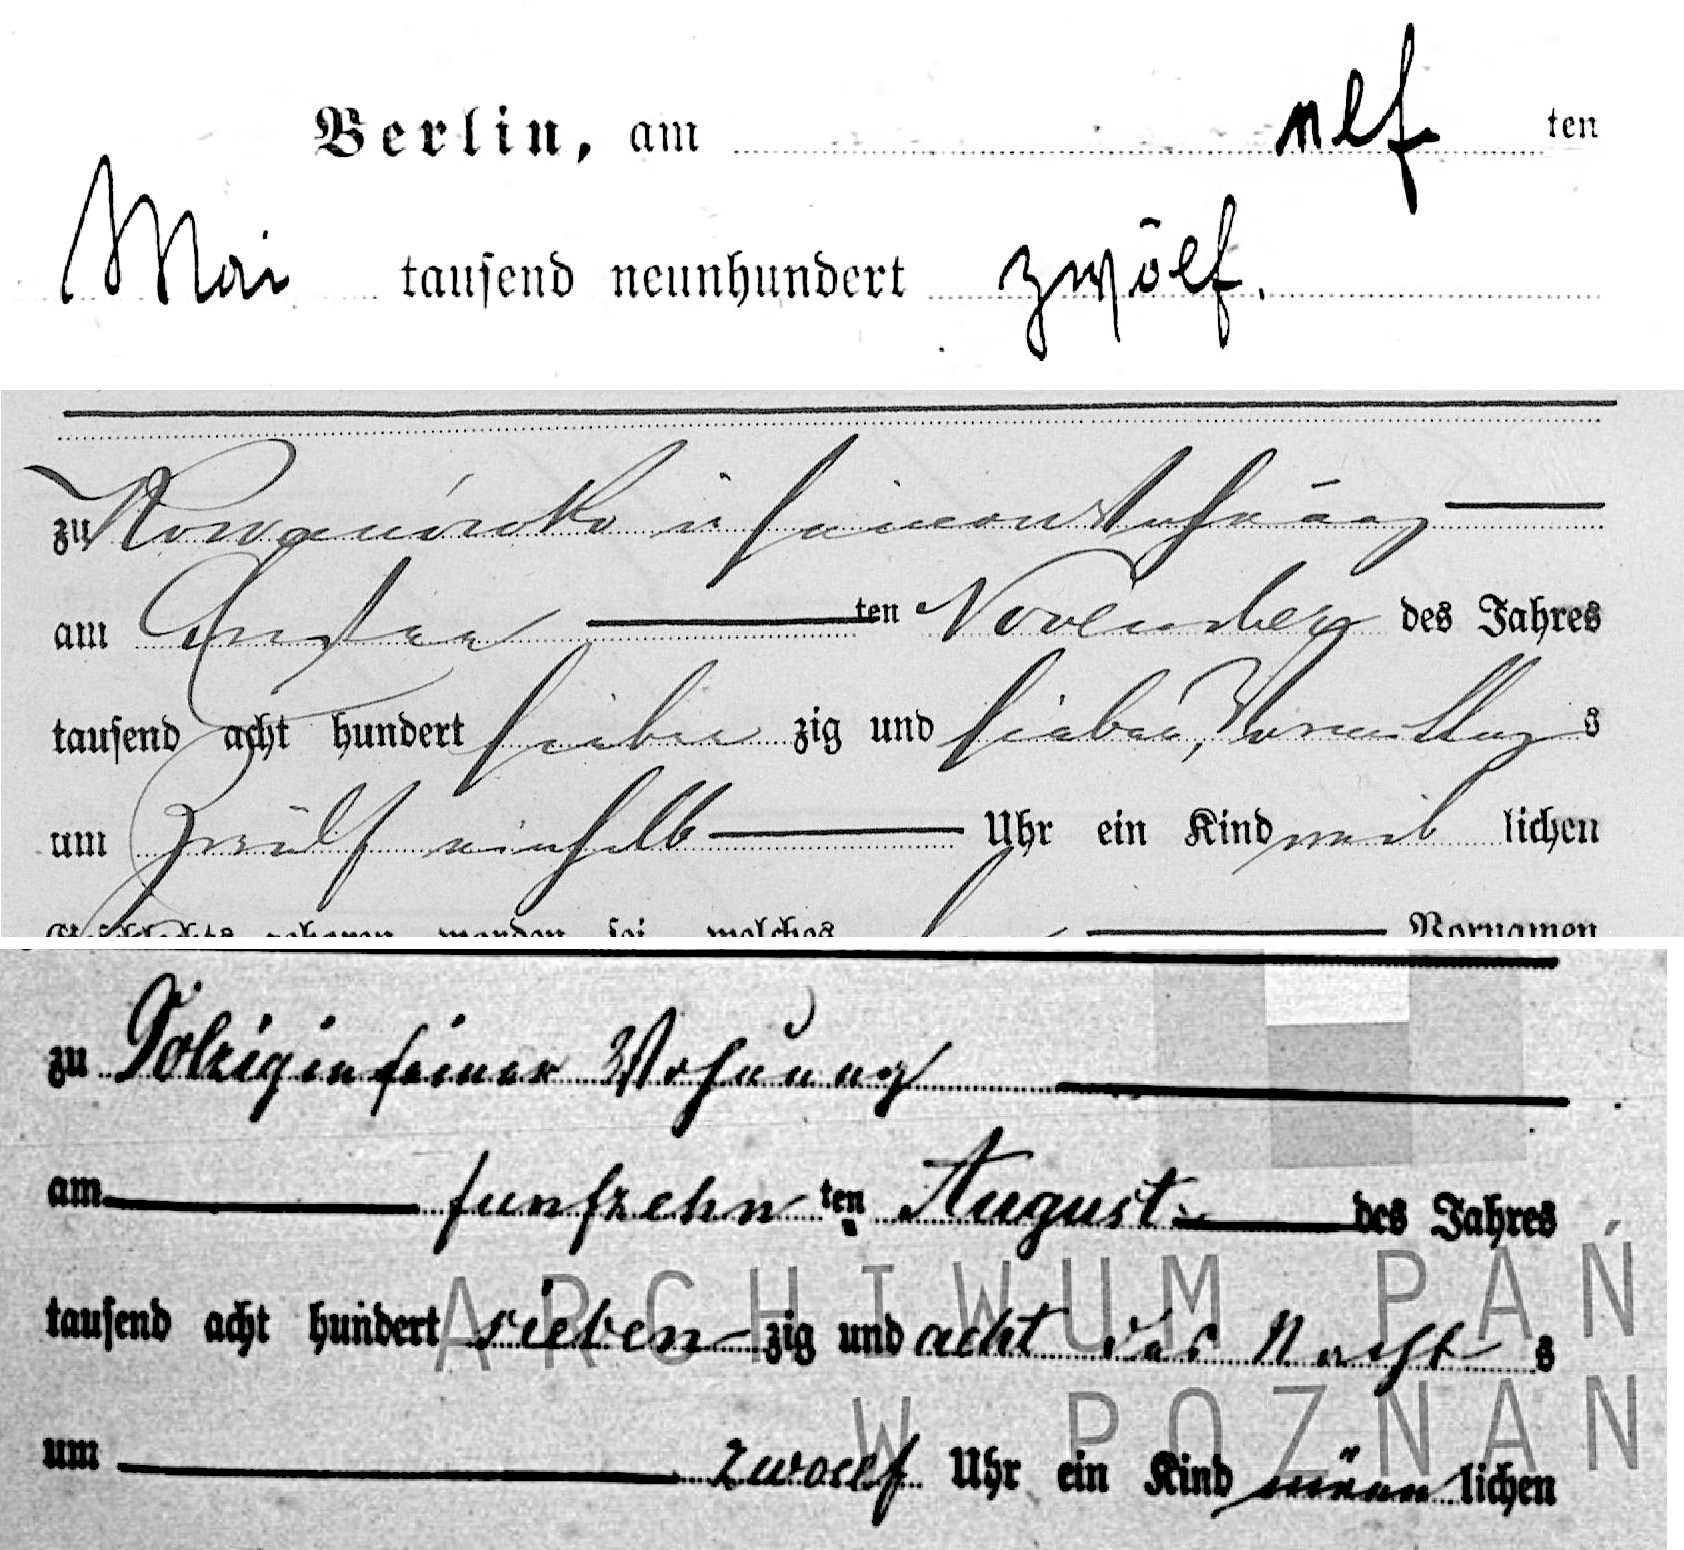 Berlin, am elf ten
Mai tausend neunhundert zwölf.
zu in seiner Behausung
am Ersten ten November des Jahres
tausend acht hundert sieben zig und sieben, Vormittags
um Zwölf einhalb Uhr ein Kind weiblichen
Geschlechts geboren worden sei, welches Vornamen
zu Dolzig in seiner Wohnung
am funfzehn ten August des Jahres
tausend acht hundert sieben zig und acht des Nachts
um zwoelf Uhr ein Kind männlichen
ARCHIWUM PAŃ
W POZNAN